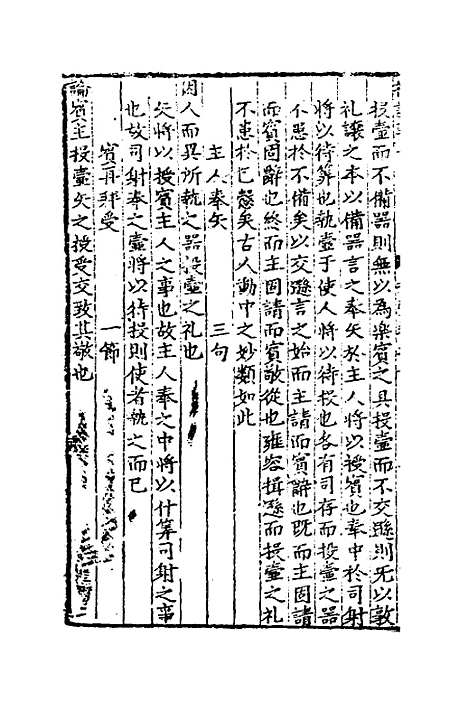 投壺而不備器則無以為樂賓之具投壺而不交遜則旡以敦
礼讓之本以備器言之奉矢於主人將以授賓也奉中於司射
將以待筭也執壺于使人將以待投也各有司存而投壺之器
不患於不備矣以交遜言之始而主請而賓辭也既而主固請
而賓固辭也終而主固請而賓敬從也雍容揖遜而投壺之礼
不患於已愨矣古人動中之妙類如此
主人奉矢 三句
因人而異所執之器投壺之礼也
矢將以授賓主人之事也故主人奉之中將以什筭司射之事
也故司射奉之壺將以待投則使者執之而已
賓再拜受 一節
論賓主投壺矢之授受交致其敬也